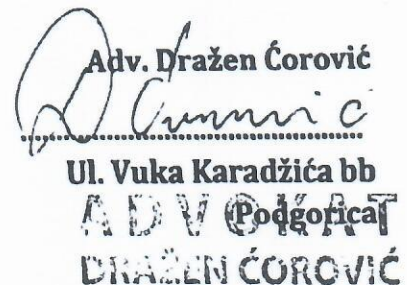 Adv. Dražen Ćorović
Ul. Vuka Karadžića bb
(Podgorica)
ADVOKAT
DRAŽEN ĆOROVIĆ